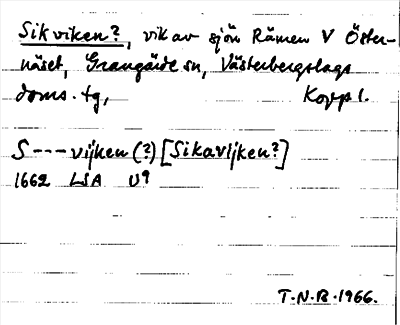 Sikviken?, vik av sjön Rämen V Öster-
näset, Grangärde sn, Västerbergslags
doms. tg, Kopp l.
S---vijken (?) [Sikavijken?]
1662 LSA U9
T.N.R. 1966.